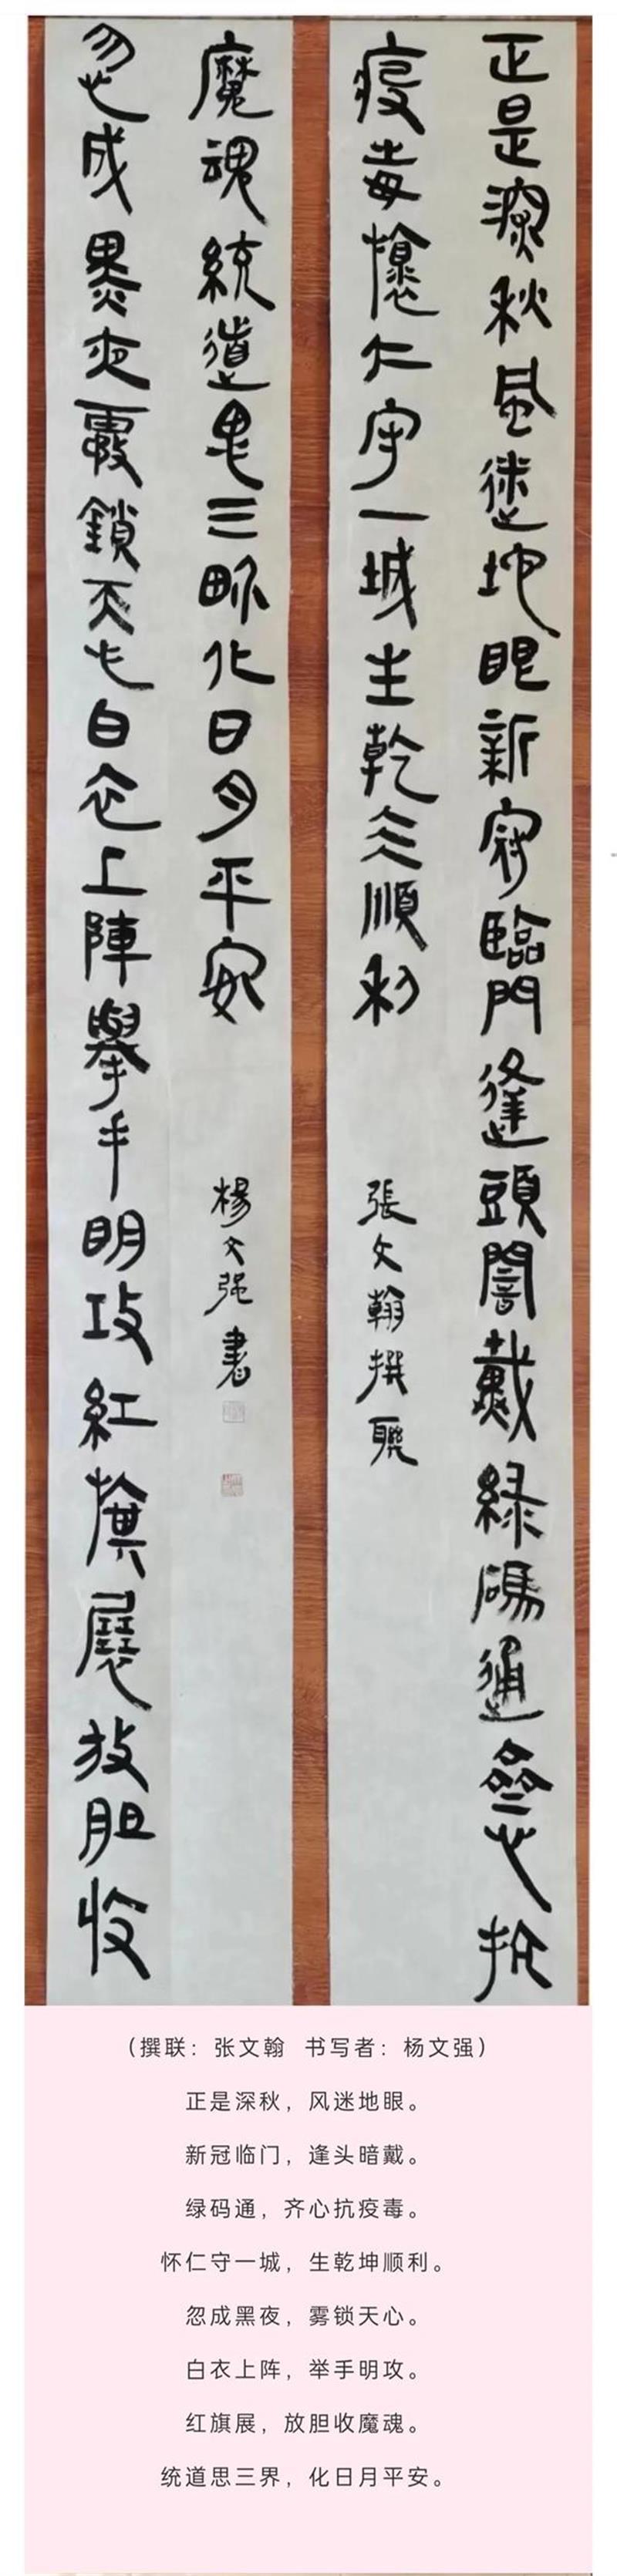 正是深秋風迷地眼新冠臨門逢頭闇戴綠碼通齊心抗
疫毒懷仁守一城生乾坤順利
張文翰撰聯
忽成黑夜霧鎖天心白衣上陣舉手明攻紅旗展放胆收
魔魂統道思三界化日月平安
楊文强書
（撰联：张文翰 书写者：杨文强）
正是深秋，风迷地眼。
新冠临门，逢头暗戴。
绿码通，齐心抗疫毒。
怀仁守一城，生乾坤顺利。
忽成黑夜，雾锁天心。
白衣上阵，举手明攻。
红旗展，放胆收魔魂。
统道思三界，化日月平安。